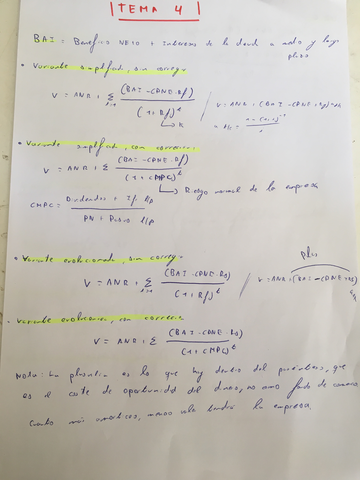 TEMA 4
BAI = Beneficio NETO + Intereses de la deuda a corto y largo plazo
• Variante simplificada, sin corregir
V = ANR + Σ (BAI - CPNE · Rf) / (1 + Rf)^t // V = ANR + (BAI - CPNE · Rf)
• Variante simplificada, con corrección
V = ANR + Σ (BAI - CPNE · Rf) / (1 + CMPC)^t
→ Riesgo normal de la empresa
CMPC = Dividendos + If Dp / PN + Pasivo l/p
• Variante evolucionada, sin corregir
plus
V = ANR + Σ (BAI - CPNE · Rs) / (1 + Rf)^t // V = ANR + (BAI - CPNE · Rs)
• Variante evolucionada, con correccion
V = ANR + Σ (BAI - CPNE · Rs) / (1 + CMPC)^t
Nota: La plusvalía es lo que hay dentro del paréntesis, que
es el coste de oportunidad del dinero, no como fondo de comercio
Cuanto más amortices, menos vale tendrá la empresa.